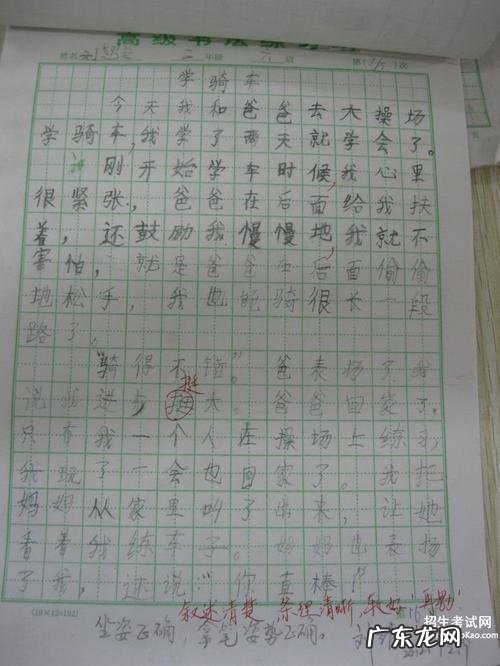 高级书法练习纸
姓名 二年级 六班 第(15)次
学骑车
今天我和爸爸去大操场
学骑车,我学了两天就学会了。
刚开始学车时候,我心里
很紧张,爸爸在后面给我扶
着,还鼓励我慢慢地,我就不
害怕,就是爸爸在后面偷偷
地松手,我也能骑很长一段
路了,
“骑得不错”。爸表扬了我
说我进步挺大。爸爸回家了。
只有我一个人在操场上练习,
我既了一会也回家了。我把
妈妈从家里叫了出来,让她
看着我练车子。妈妈也表扬
了我,还说:“你真棒!”
(16×12=192)
叙述清楚 条理清晰,较好,再努
坐姿正确,拿笔姿势正确。
招生考试网
www.
广东龙网